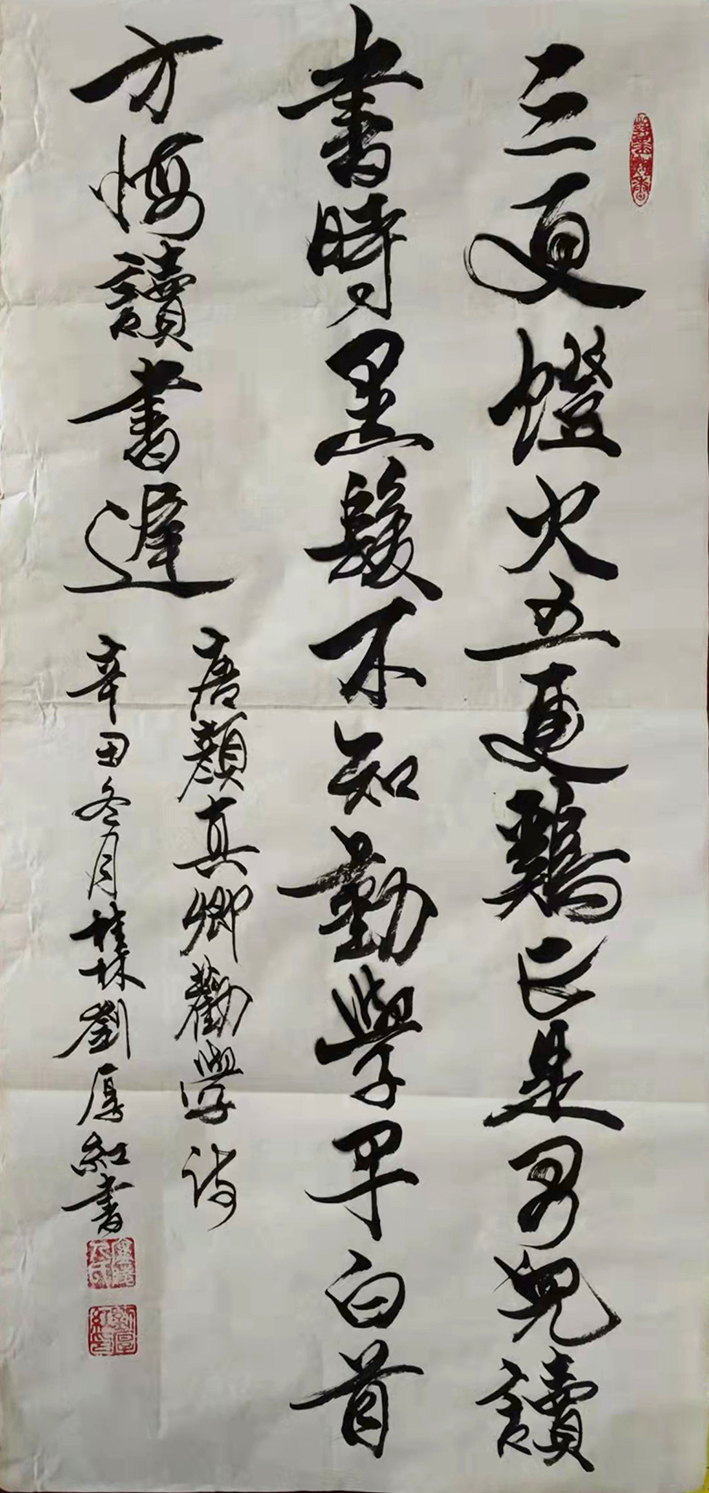 三更燈火五更鷄正是男兒讀
書時黑髮不知勤學早白首
方悔讀書遲
唐顏真卿勸學詩
辛丑冬月桂林劉厚紅書